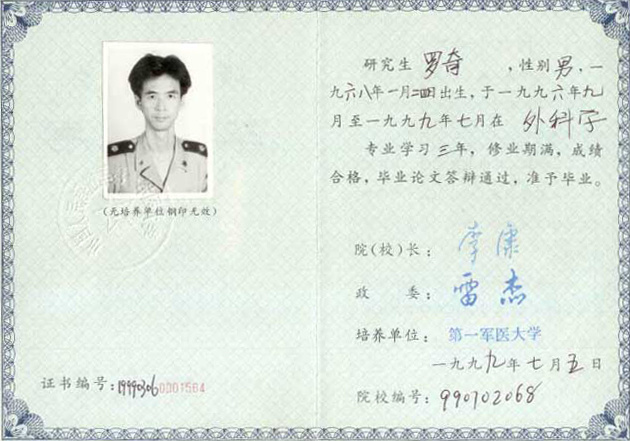 (无培养单位钢印无效)
证书编号:19990306 0001564
研究生 罗奇 ,性别男,一
九六八年一月二四日出生,于一九九六年九
月至一九九九年七月在 外科学
专业学习三年,修业期满,成绩
合格,毕业论文答辩通过,准予毕业。
院(校)长: 李康
政 委: 雷杰
培养单位: 第一军医大学
一九九九年七月五日
院校编号: 990702068